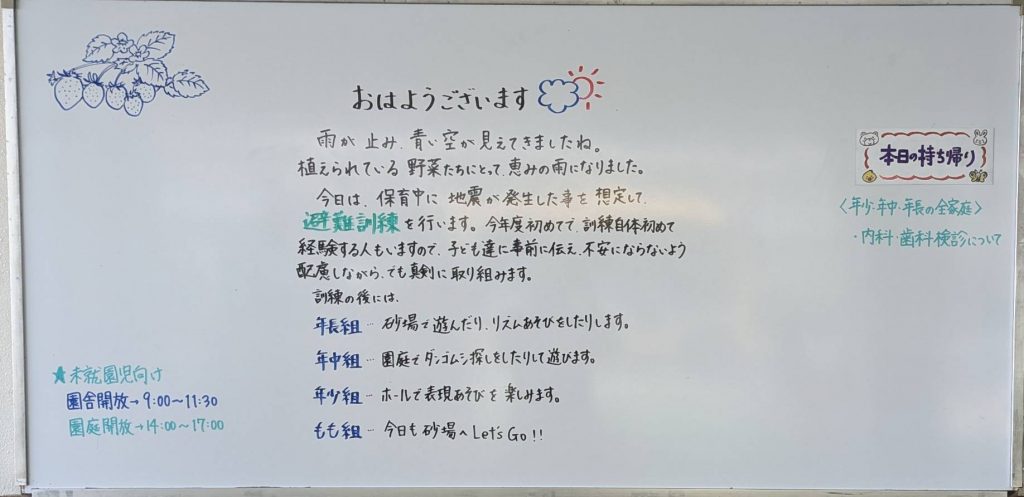 おはようございます
雨が止み、青い空が見えてきましたね。
植えられている野菜たちにとって、恵みの雨になりました。
今日は、保育中に地震が発生した事を想定して、
避難訓練を行います。今年度初めてで、訓練自体初めて
経験する人もいますので、子ども達に事前に伝え、不安にならないよう
配慮しながら、でも真剣に取り組みます。
訓練の後には、
年長組…砂場で遊んだり、リズムあそびをしたりします。
年中組…園庭でダンゴムシ探しをしたりして遊びます。
年少組…ホールで表現あそびを楽しみます。
もも組…今日も砂場へLet's Go!!
本日の持ち帰り
〈年少・年中・年長の全家庭〉
・内科・歯科検診について
★未就園児向け
園舎開放→9:00〜11:30
園庭開放→14:00〜17:00